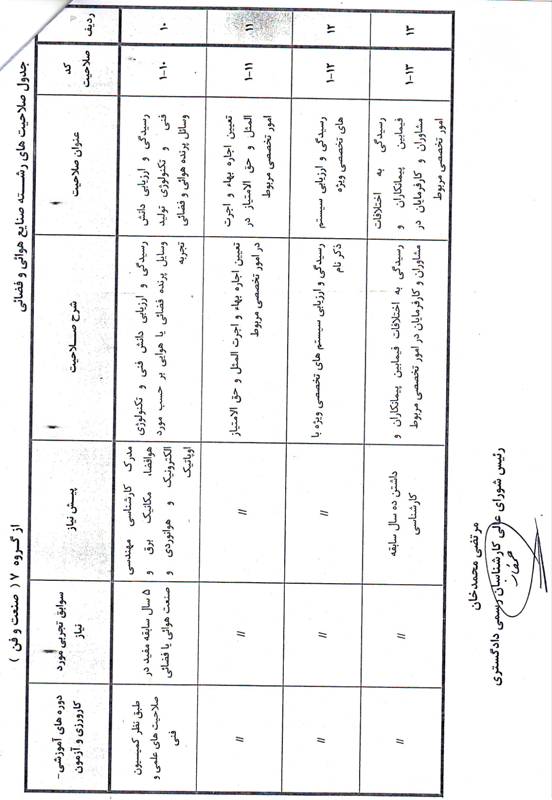 جدول صلاحیت های رشته صنایع هوائی و فضائی
از گروه ۷ ( صنعت و فن )
ردیف
کد
صلاحیت
عنوان صلاحیت
شرح صلاحیت
پیش نیاز
سوابق تجربی مورد
نیاز
دوره های آموزشی-
کارورزی و آزمون
۱۰
۱-۱۰
رسیدگی و ارزیابی دانش
فنی و تکنولوژی تولید
وسائل پرنده هوائی و فضائی
رسیدگی و ارزیابی دانش فنی و تکنولوژی
وسایل پرنده فضائی یا هوایی بر حسب مورد
تجربه
مدرک کارشناسی مهندسی
هوافضا، مکانیک برق و
الکترونیک و هوانوردی و
اویانیک
۵ سال سابقه مفید در
صنعت هوائی یا فضائی
طبق نظر کمیسیون
صلاحیت های علمی و
فنی
۱۱
۱-۱۱
تعیین اجاره بهاء و اجرت
المثل و حق الامتیاز در
امور تخصصی مربوط
تعیین اجاره بهاء و اجرت المثل و حق الامتیاز
در امور تخصصی مربوط
//
//
//
۱۲
۱-۱۲
رسیدگی و ارزیابی سیستم
های تخصصی ویژه
رسیدگی و ارزیابی سیستم های تخصصی ویژه با
ذکر نام
//
//
//
۱۳
۱-۱۳
رسیدگی به اختلافات
فیمابین پیمانکاران و
مشاوران و کارفرمایان در
امور تخصصی مربوط
رسیدگی به اختلافات فیمابین پیمانکاران و
مشاوران و کارفرمایان در امور تخصصی مربوط
داشتن ده سال سابقه
کارشناسی
//
//
مرتضی محمدخان
رئیس شورای عالی کارشناسان رسمی دادگستری